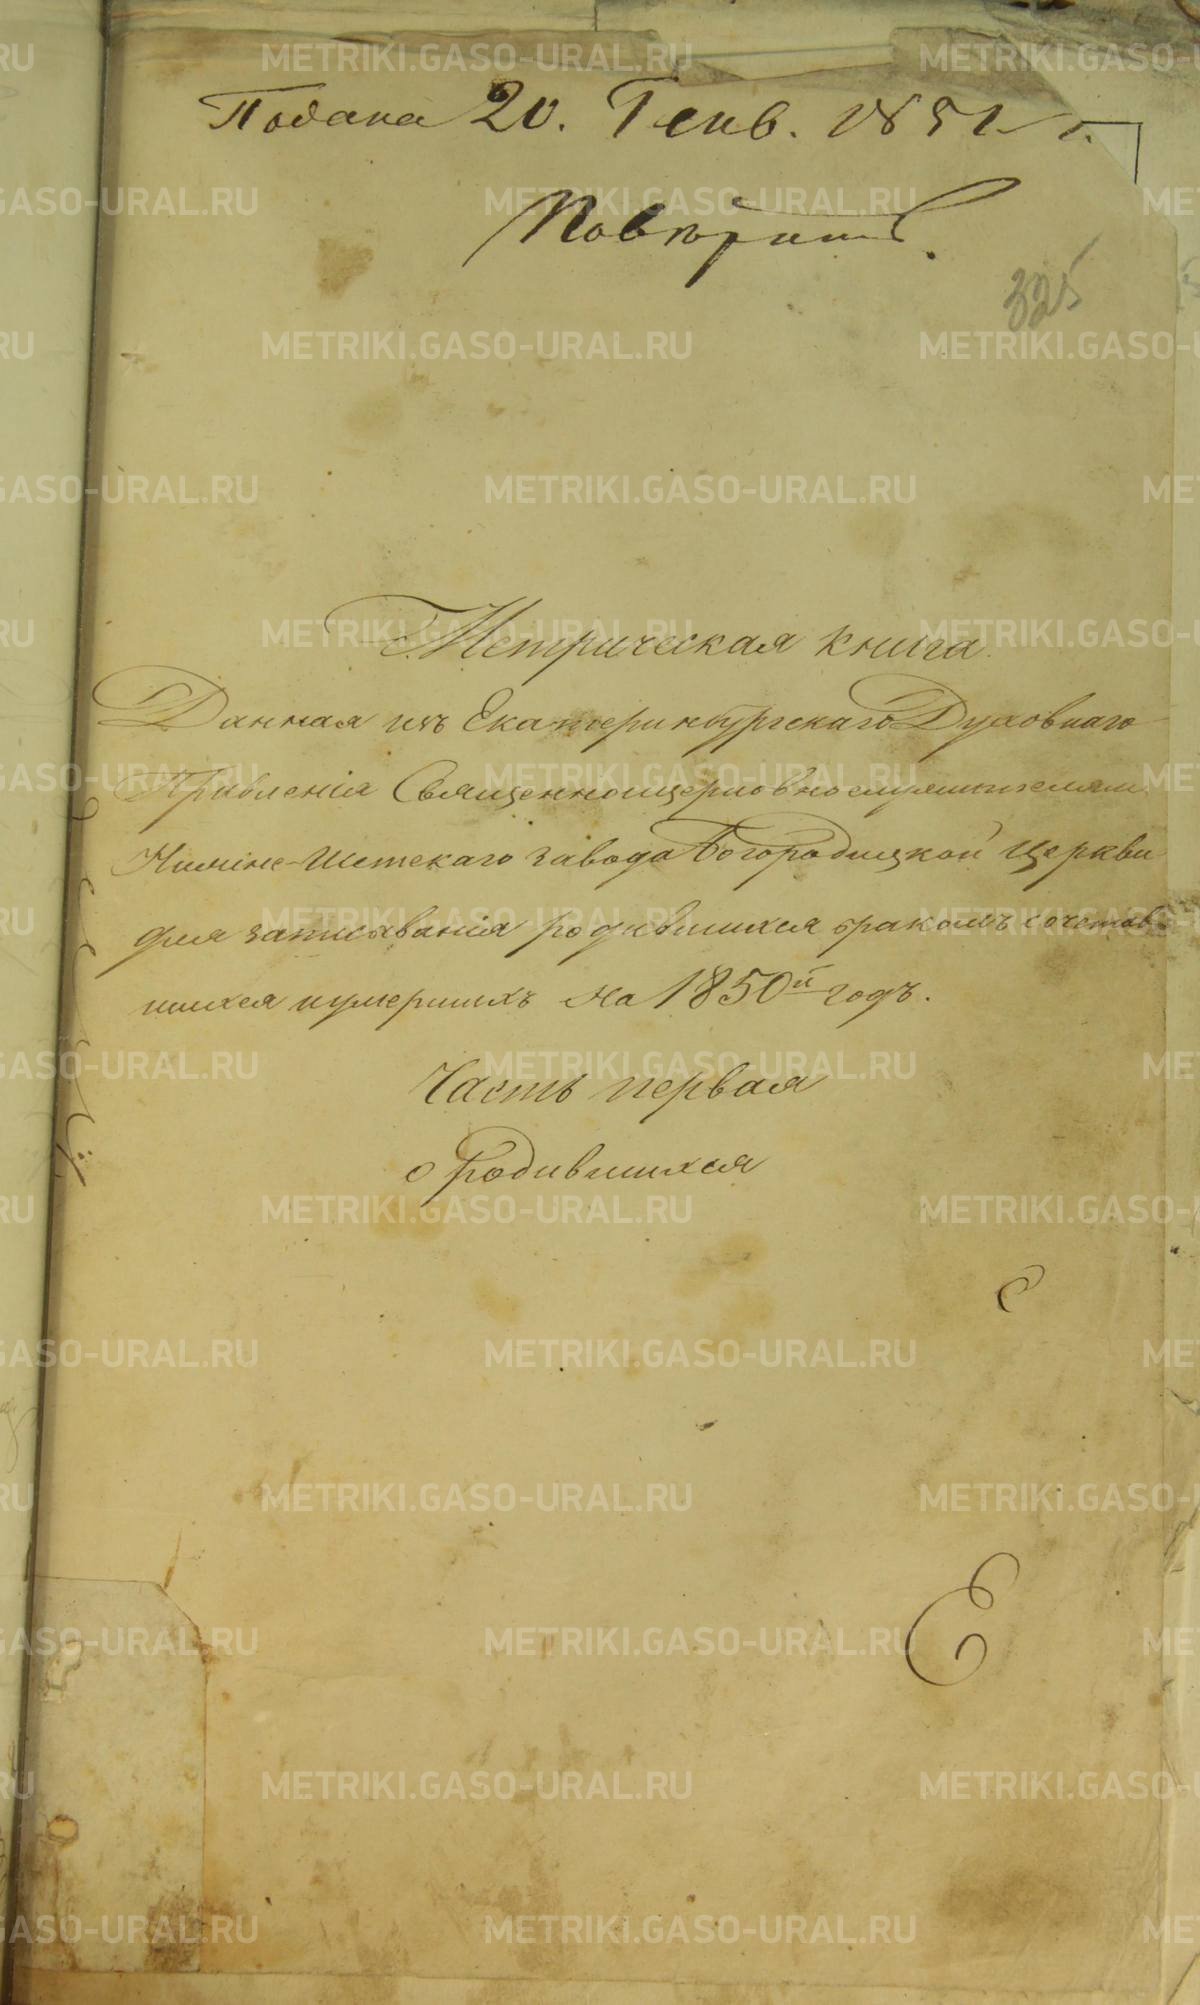 Подана 20. Генв. 1851 г.
Повѣрить.
325
Метрическая книга
Данная изъ Екатеринбургскаго Духовнаго
Правленія Священноцерковнослужителямъ
Нижне-Исетскаго завода Богородицкой церкви
для записыванія родившихся бракомъ сочетав-
шихся и умершихъ на 1850й годъ.
Часть первая
о Родившихся